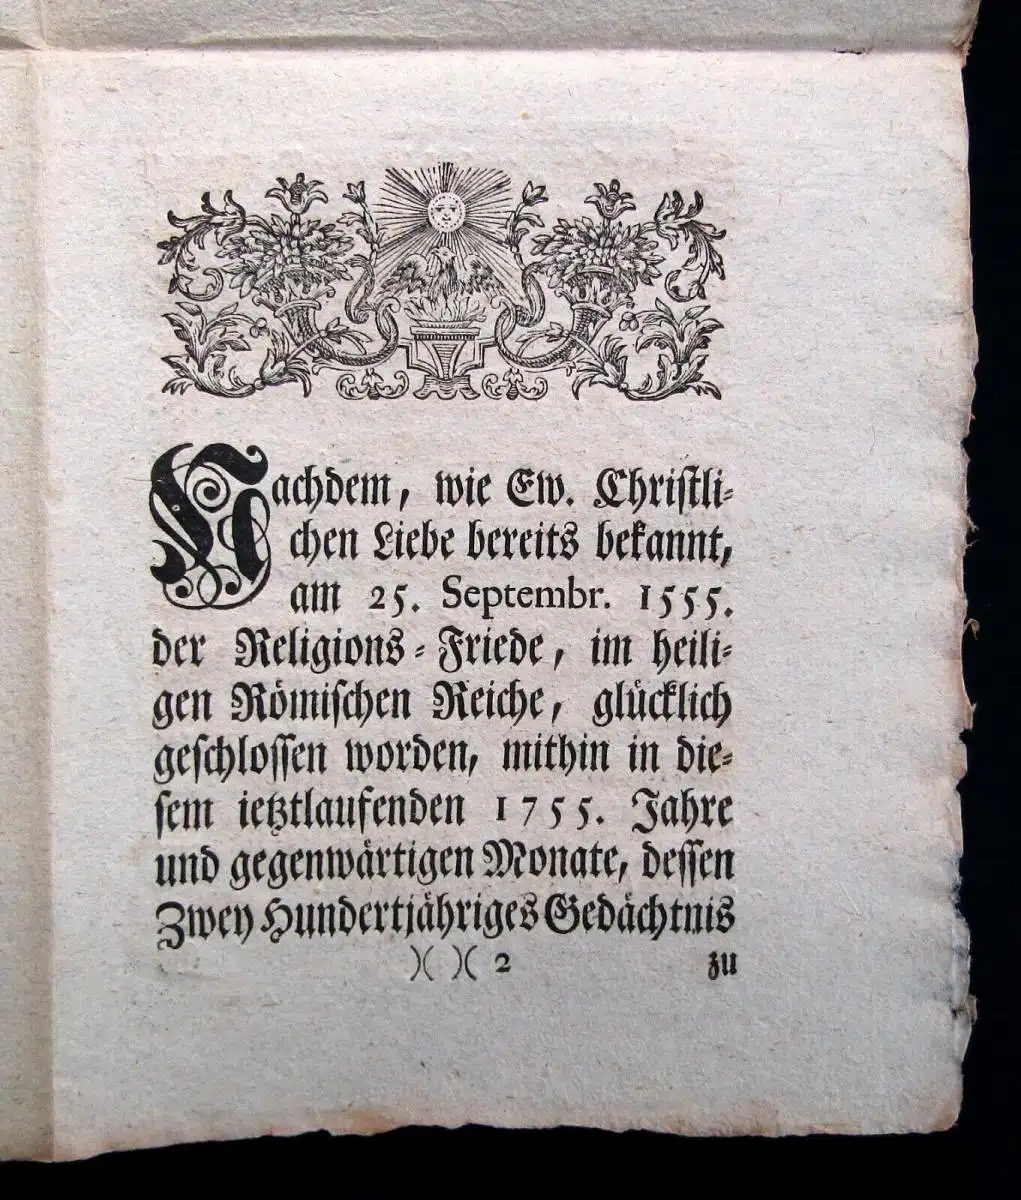 Nachdem, wie Ew. Christli-
chen Liebe bereits bekannt,
am 25. Septembr. 1555.
der Religions-Friede, im heili-
gen Römischen Reiche, glücklich
geschlossen worden, mithin in die-
sem ietztlaufenden 1755. Jahre
und gegenwärtigen Monate, dessen
Zwey Hundertjähriges Gedächtnis
)( )( 2 zu